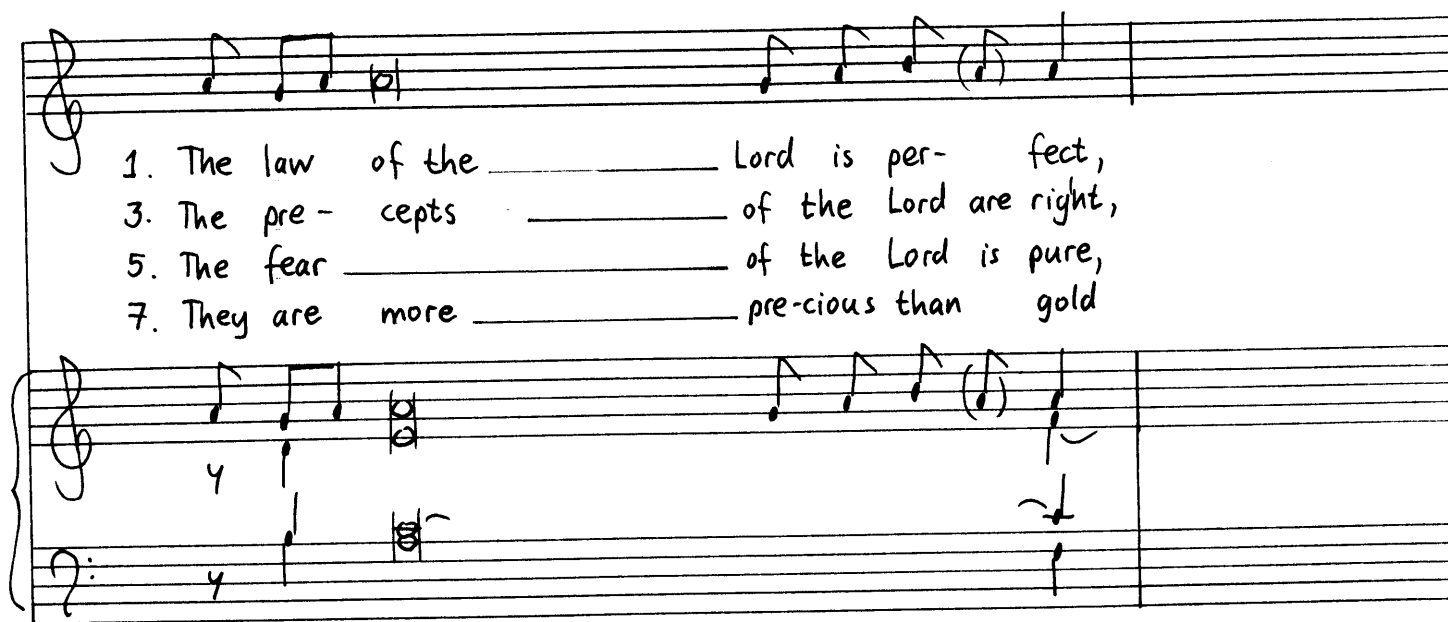 1. The law of the ________ Lord is per- fect,
3. The pre- cepts ________ of the Lord are right,
5. The fear ________ of the Lord is pure,
7. They are more ________ pre-cious than gold